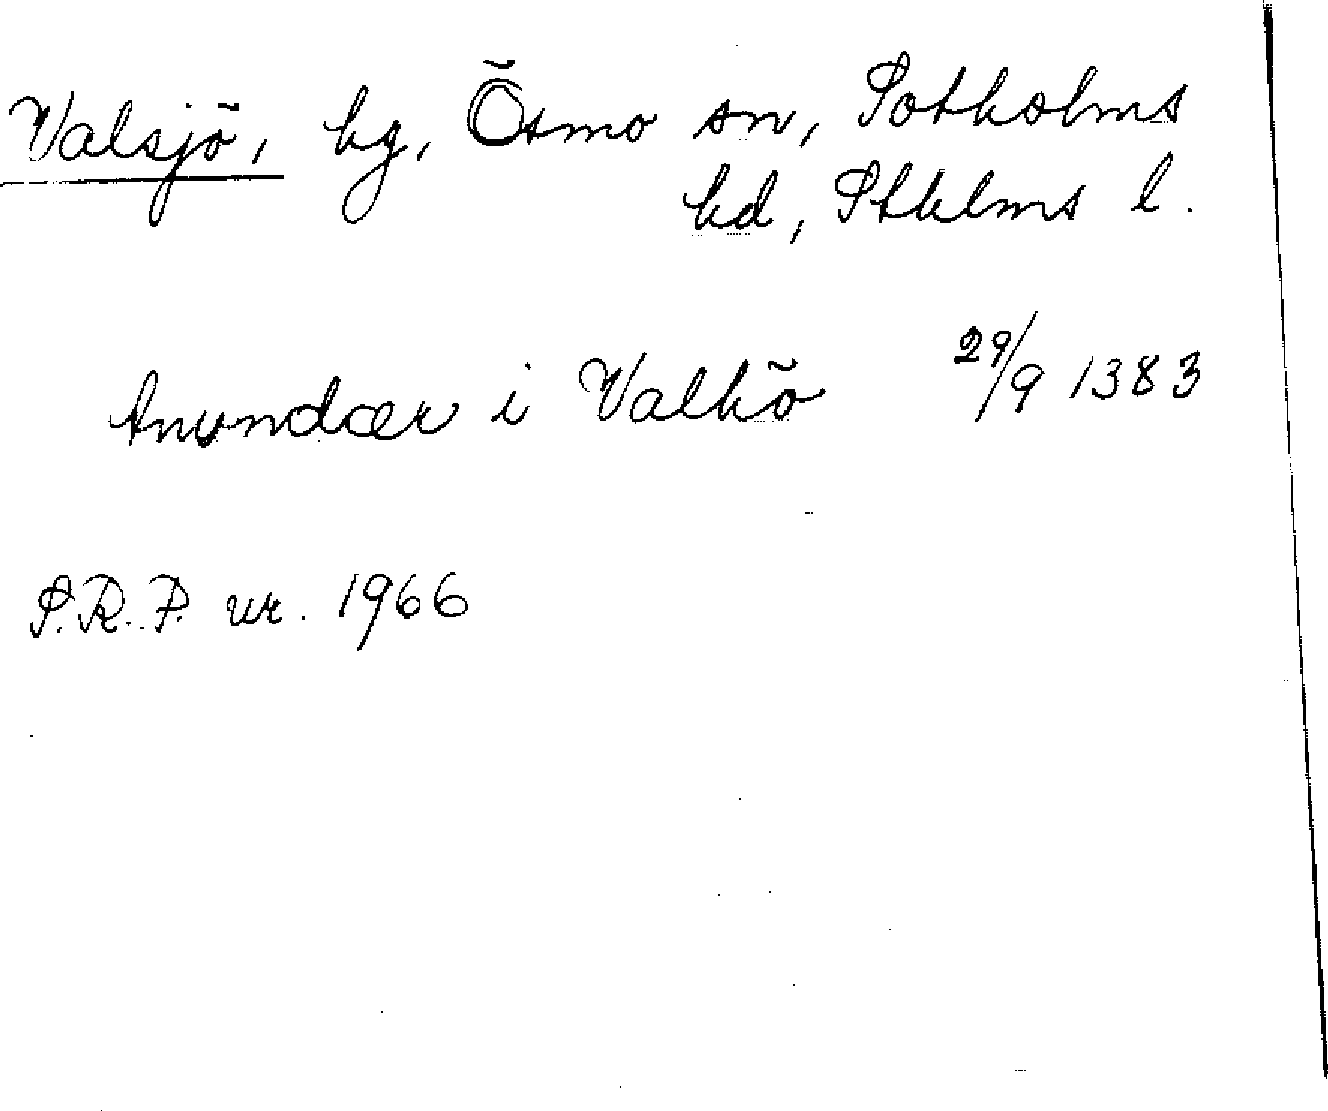 Valsjö, hg, Ösmo sn, Sotholms
hd, Sthlms l.
Anundær i Valhö 29/9 1383
S.R.P. nr. 1966